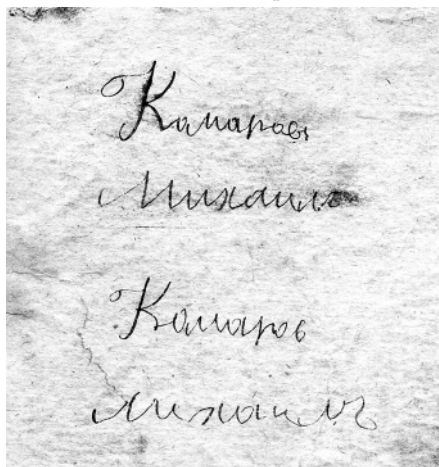 Комаровъ
Михаилъ
Комаров
Михаилъ